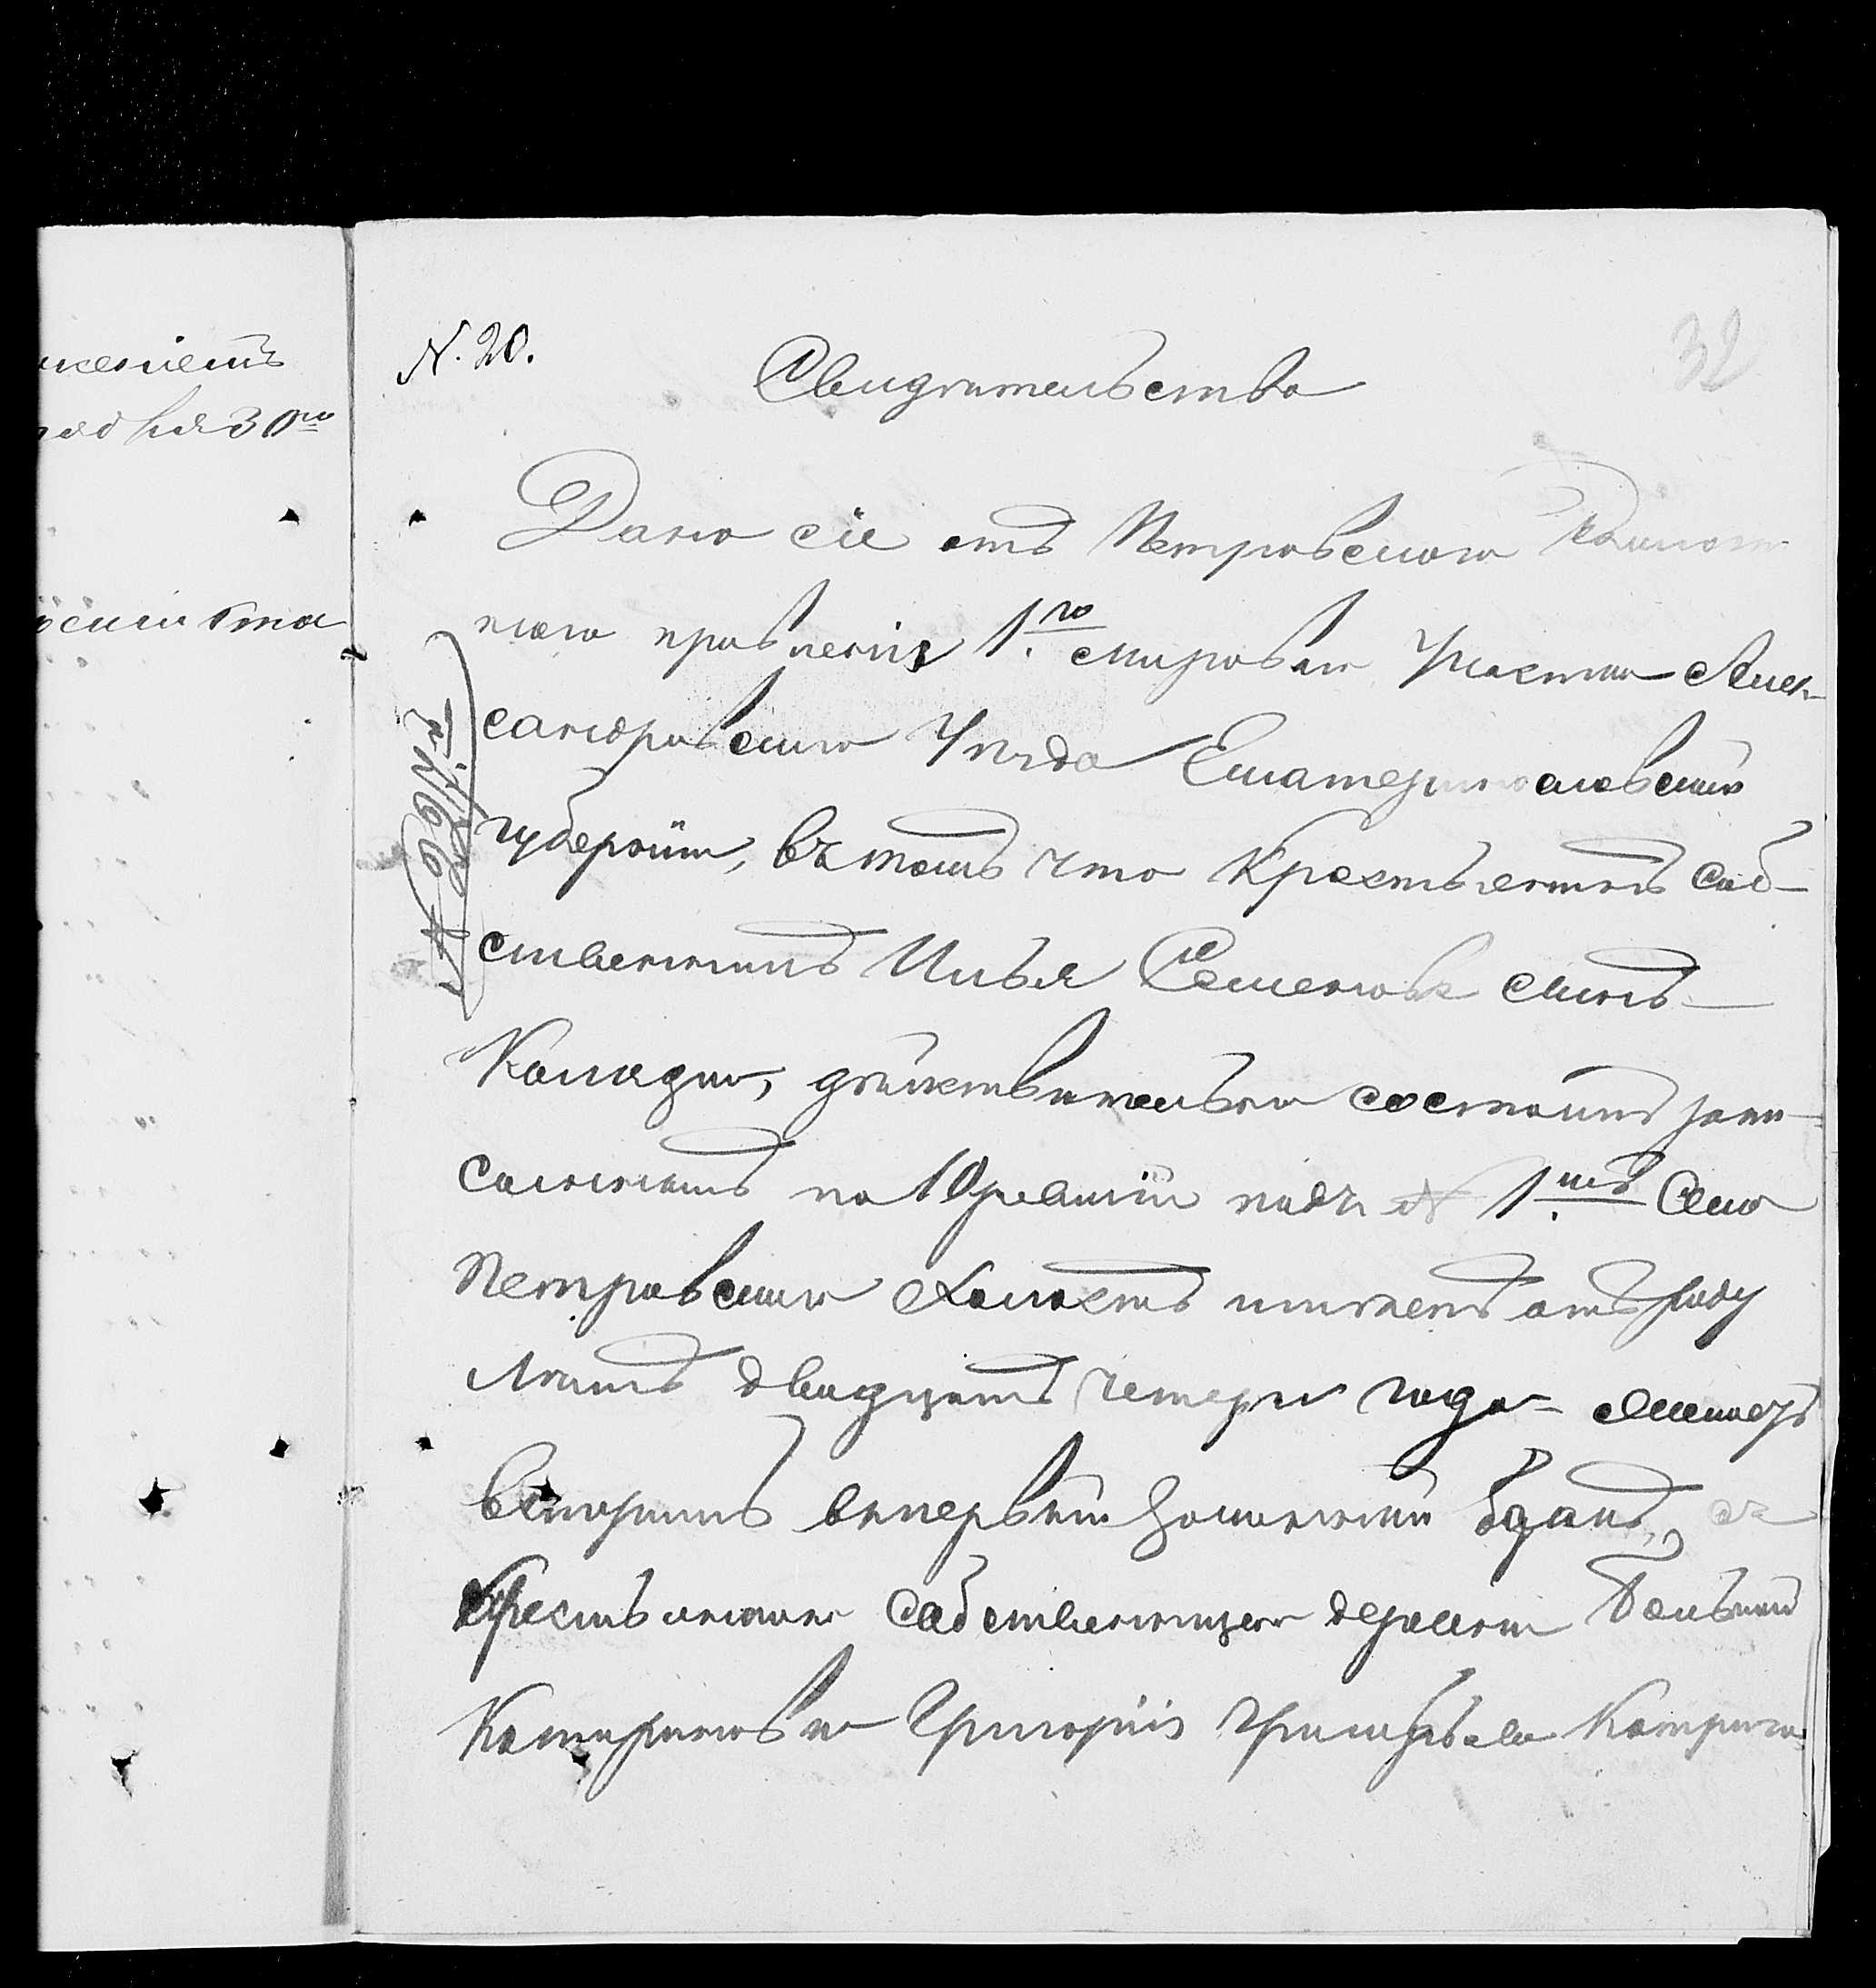 N. 20.
32
Свидѣтельство
Дано сіе отъ Петровского Волост
ного правленія 1го мироваго Участка Алек-
сандровскаго Уѣзда Екатеринославской
губерніи, въ томъ что Крестьянинъ соб-
ственникъ Илья Семеновъ сынъ
Коляды, дѣйствительно состоитъ запи-
саннымъ по 10 ревизіи подъ № 1мъ Село
Петровское Холостъ имѣетъ отъ роду
лѣтъ двадцать четыри года=
вступить впервый Законный бракъ, съ
Крестьянкою собственницею деревни
Григорія Григорьева
женіемъ
30го